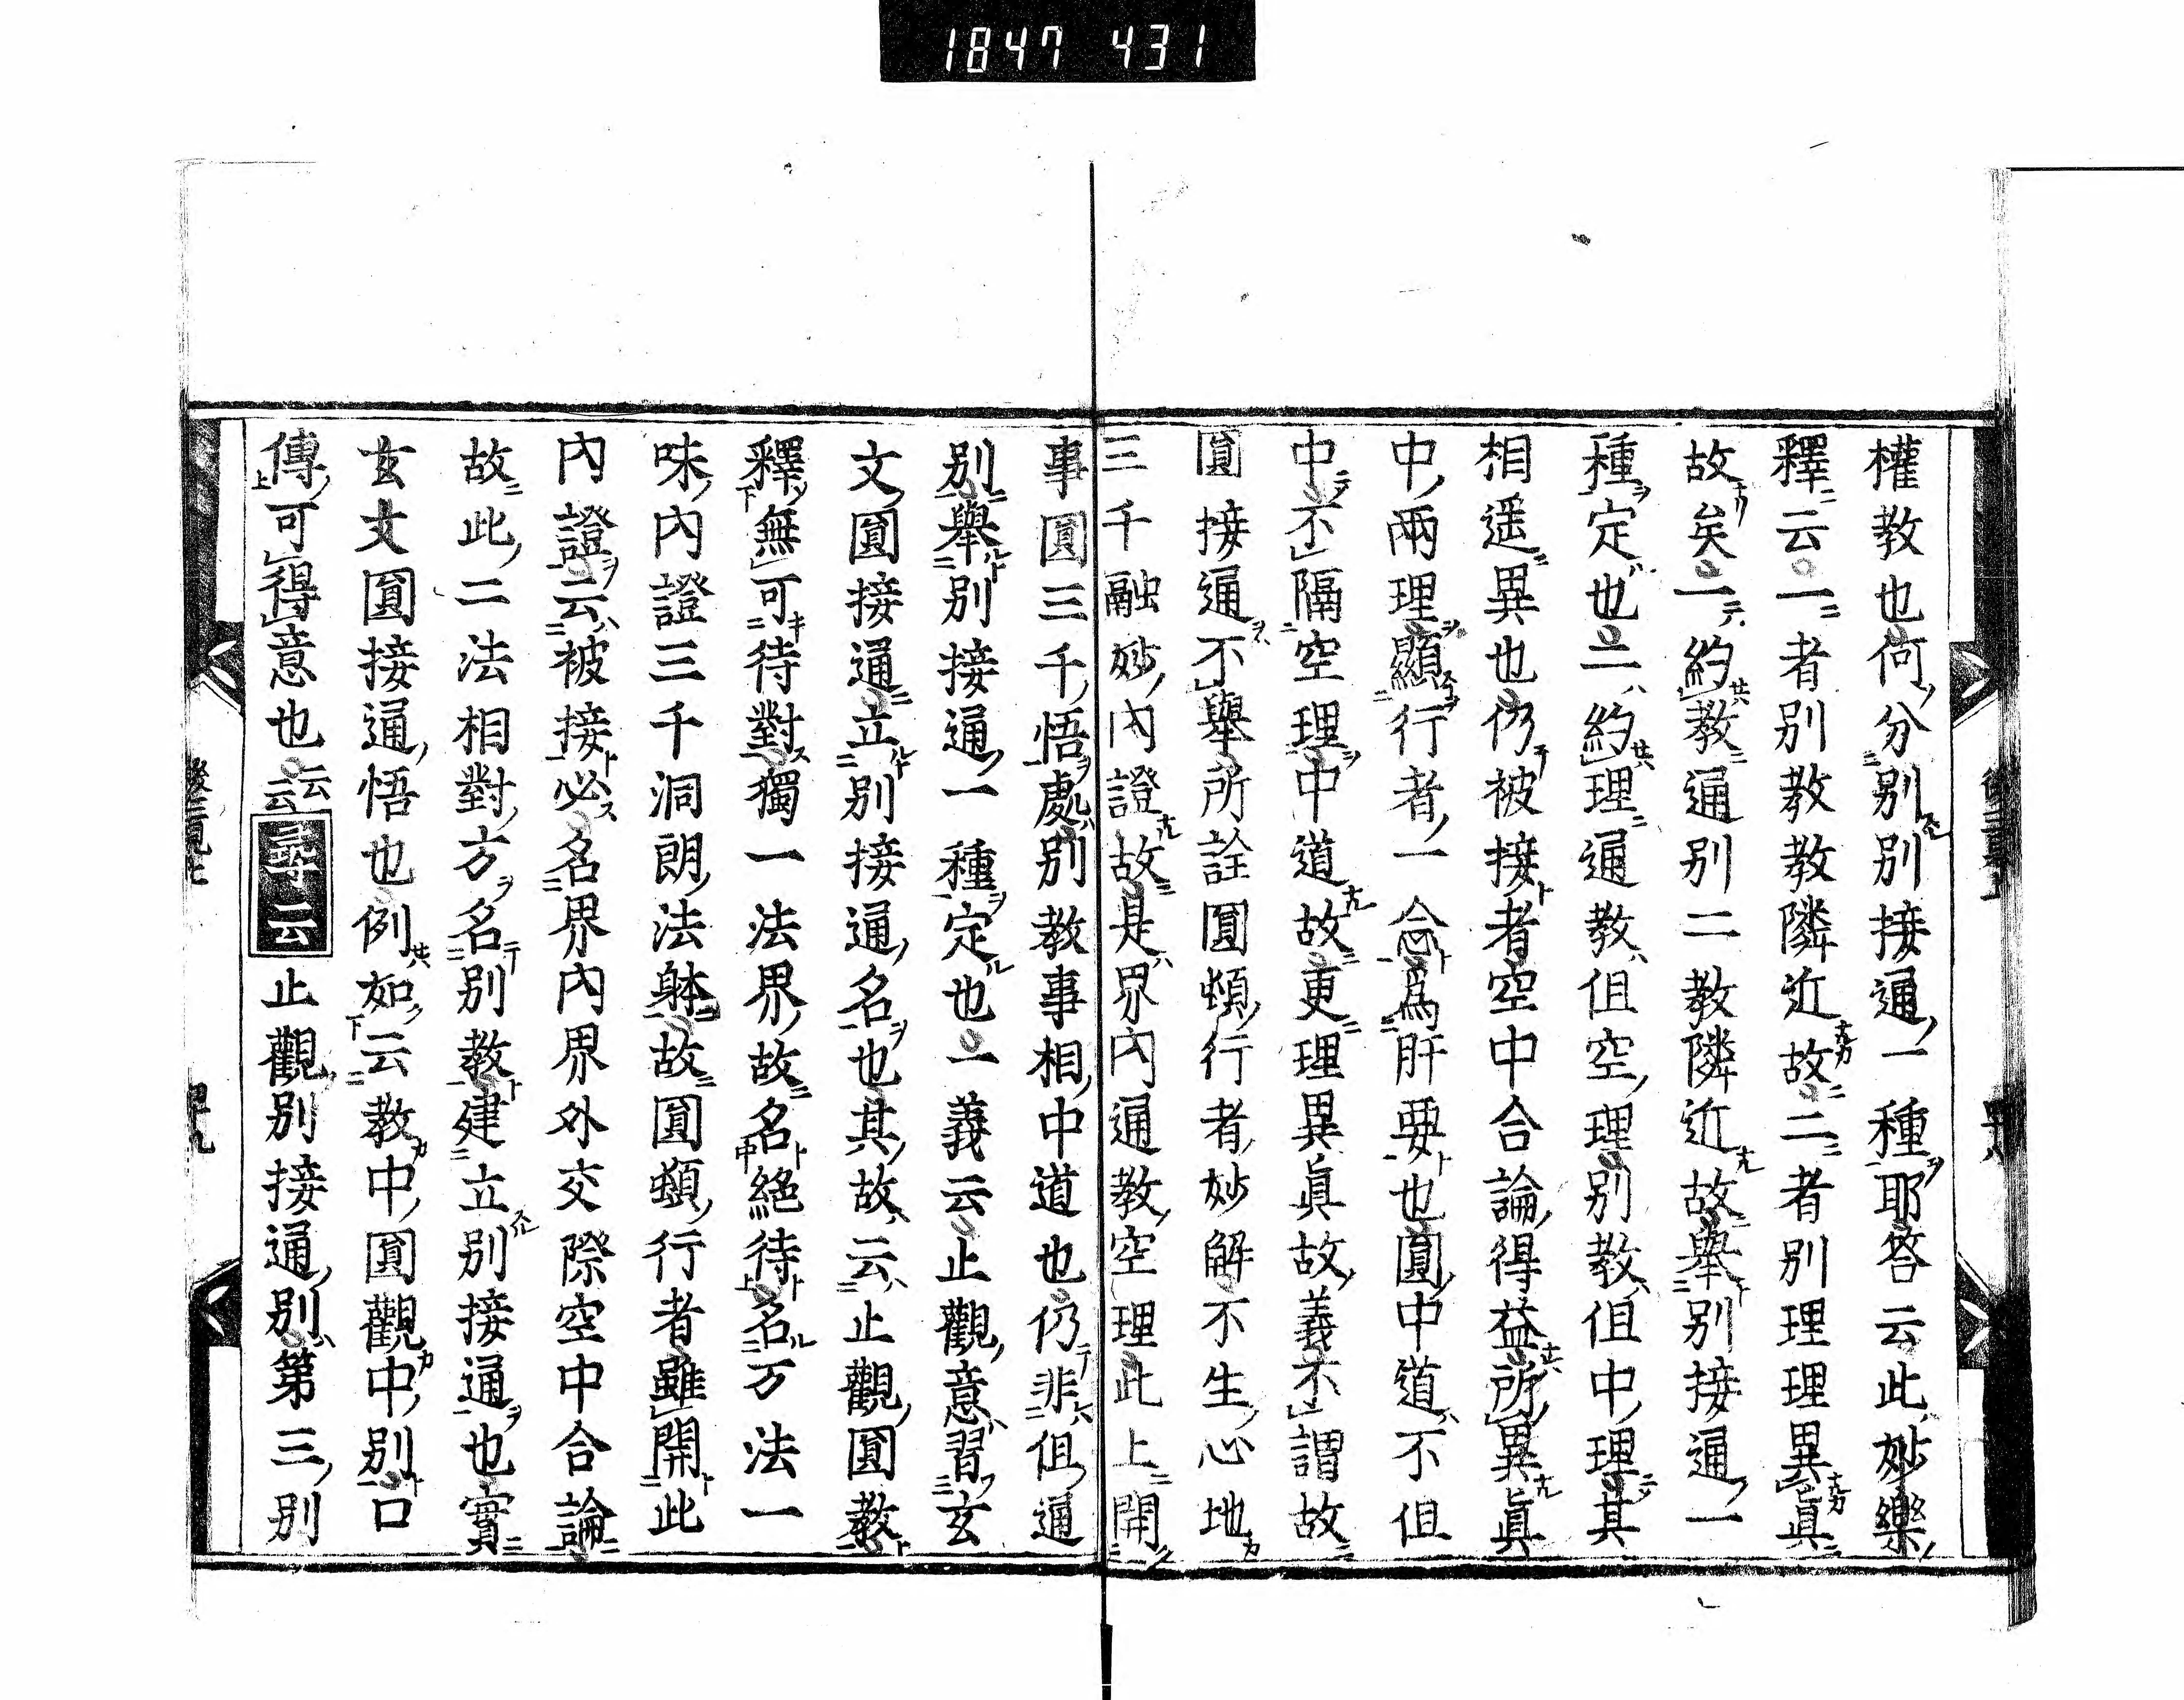 1847 431
權教也何分別別接通一種耶答云此妙樂
釋云一者別教教隣近故二者別理理異眞
故矣一約教通別二教隣近故舉別接通一
種定也二約理通教但空理別教但中理其
相遥異也仍被接者空中合論得益所異眞
中兩理顯行者一念爲肝要也圓中道不但
中不隔空理中道故更理異眞故義不謂故
圓接通不舉所詮圓頓行者妙解不生心地
三千融妙內證故是界内通教空理此上開
事圓三千悟處別教事相中道也仍非但通
別舉別接通一種定也一義云止觀意習玄
文圓接通立別接通名也其故云止觀圓教
釋無可待對獨一法界故名絕待名万法一
味內證三千洞朗法躰故圓頓行者雖開此
內證云被接必名界內界外交際空中合論
故此二法相對方名別教建立別接通也實
玄文圓接通悟也例如云教中圓觀中別口
傳可得意也云云尋云止觀別接通別第三別